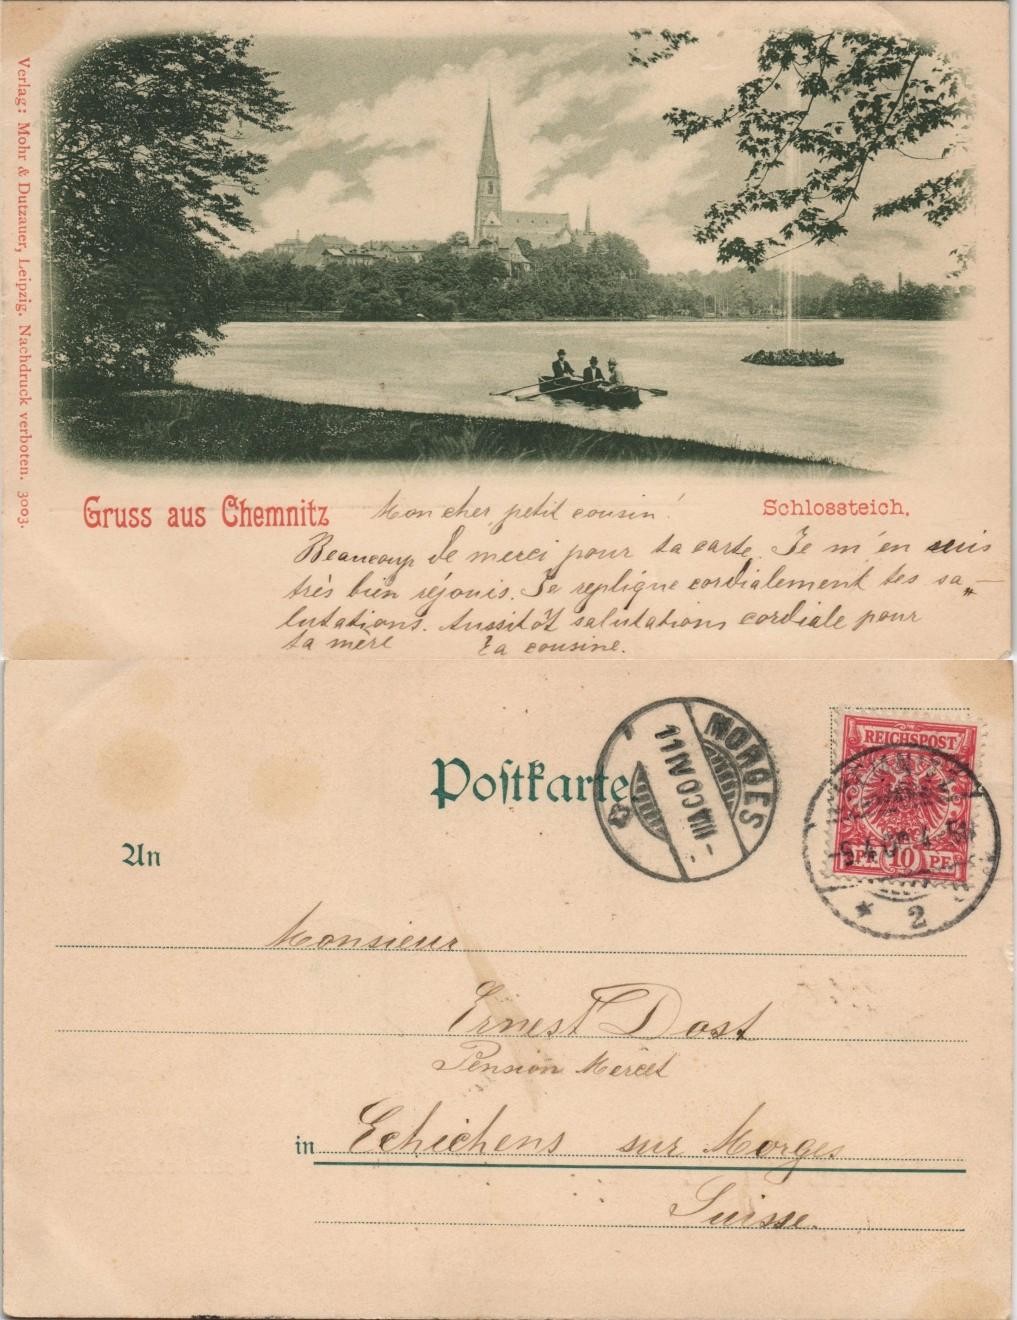 Verlag: Mohr & Dutzauer, Leipzig. Nachdruck verboten. 3003.
Gruss aus Chemnitz
Schlossteich.
Mon cher petit cousin!
Beaucoup de merci pour ta carte. Je m'en suis
très bien réjouis. Je replique cordialement tes sa-
lutations. Aussitôt salutations cordiale pour
ta mère
Ta cousine.
Postkarte
MORGES
11 IV 00
REICHSPOST
10 PF
2
An
Monsieur
Ernest Dost
Pension Mercet
in Echichens sur Morges
Suisse.